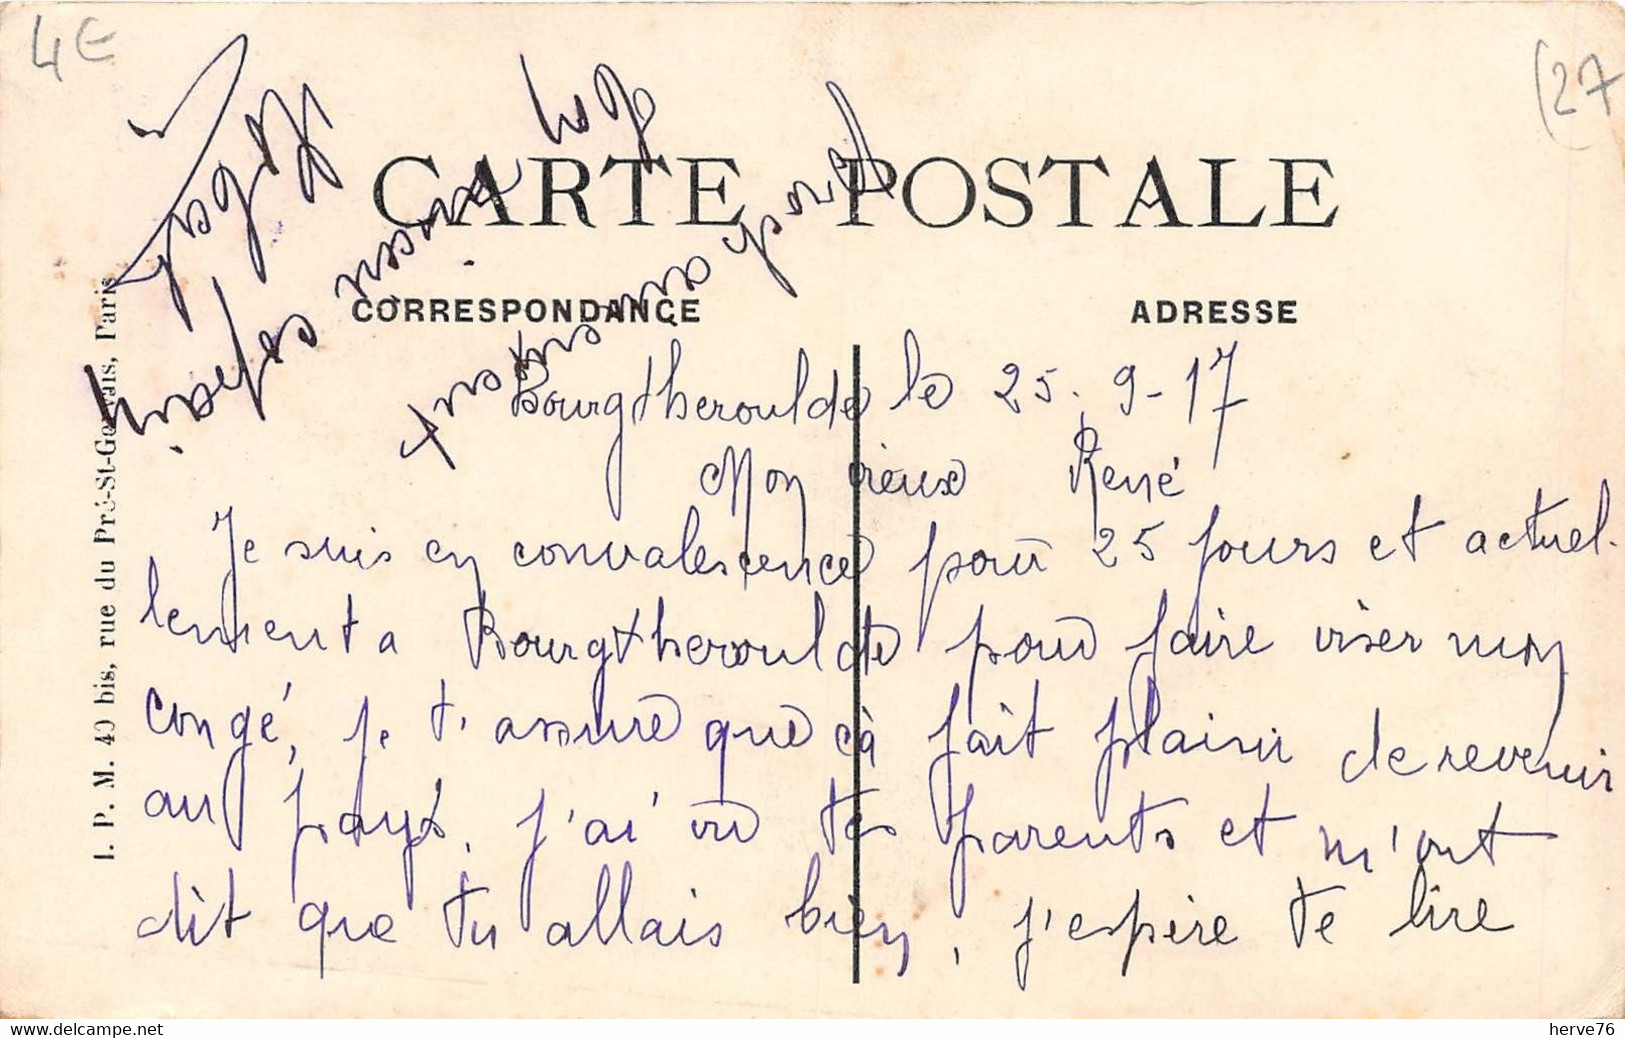 4€
(27
CARTE POSTALE
CORRESPONDANCE
ADRESSE
I. P. M. 40 bis, rue du Pré-St-Gervais, Paris
Bourgtheroulde le 25-9-17
Mon vieux René
Je suis en convalescence pour 25 jours et actuel-
lement a Bourgtheroulde pour faire viser mon
congé, je t'assure que çà fait plaisir de revenir
au pays, j'ai vu tes parents et m'ont
dit que tu allais bien, j'espère te lire
Ton cousin
Robert
www.delcampe.net
herve76